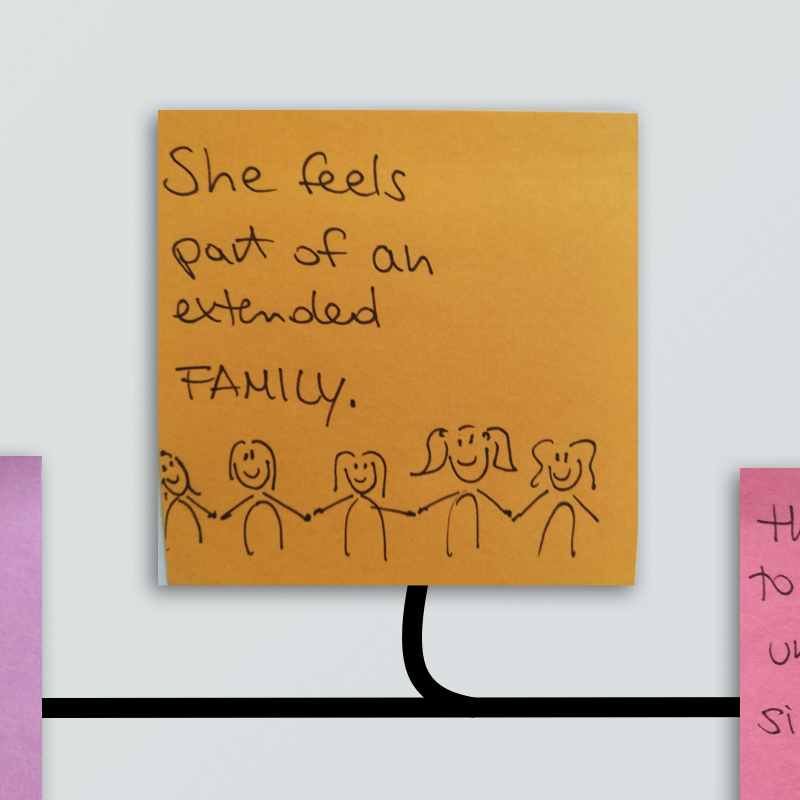 She feels
part of an
extended
FAMILY.
to